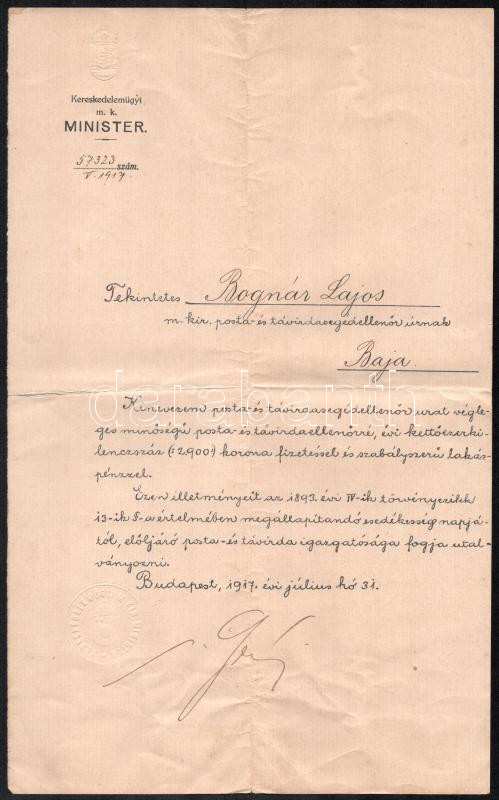 Kereskedelemügyi
m. k.
MINISTER.
57323 szám.
V. 1917.
Tekintetes Bognár Lajos
m. kir. posta- és távirdasegédellenőr úrnak
Baja.
darabanth
Kinevezem posta- és távirdasegédellenőr urat végle-
ges minőségű posta- és távirdaellenőrré, évi kettőezerki-
lenczszáz (: 2.900 :) korona fizetéssel és szabályszerű lakás-
pénzzel.
Ezen illetményeit az 1893. évi IV-ik törvényczikk
13-ik §-a értelmében megállapítandó esedékesség napjá-
tól, előljáró posta- és távirda igazgatósága fogja utal-
ványozni.
Budapest, 1917. évi július hó 31.